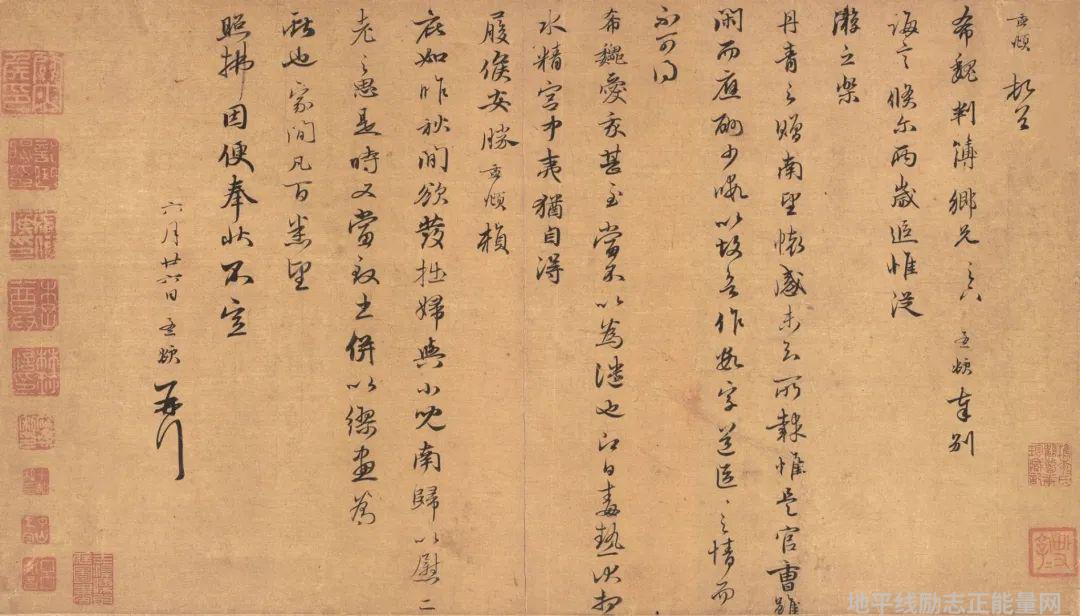 孟頫 頓首
希魏判簿鄉兄足下 孟頫奉別
誨言倏尔兩歲追惟從
游之樂
丹青之贈南望懷感未知所報惟是官曹雖
閑而應酬少暇以故欲作數字道區、之情而
不可得
希魏愛我甚至當不以為譴也即日毒熱伏想
水精宮中夷猶自得
履候安勝孟頫賴
庇如昨秋間欲發拙婦與小兒南歸以慰二
老之思是時又當致土併以繆畫為
獻也家間凡百悉望
照拂因便奉狀不宣
六月廿六日 孟頫 再拜
地平线励志正能量网